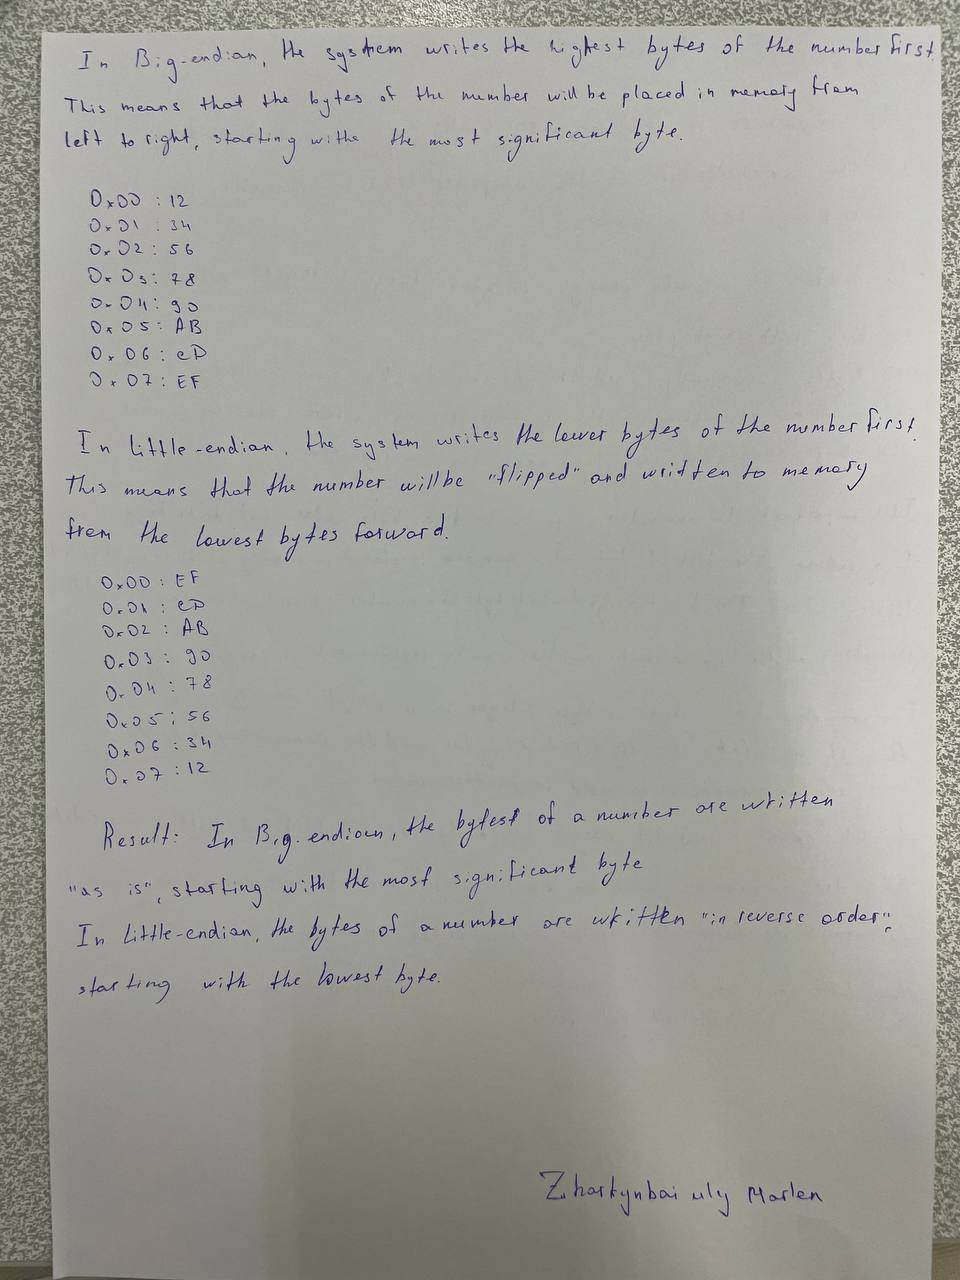 In Big-endian, the system writes the highest bytes of the number first.
This means that the bytes of the number will be placed in memory from
left to right, starting withe the most significant byte.
0x00 : 12
0x01 : 34
0x02 : 56
0x03 : 78
0x04 : 90
0x05 : AB
0x06 : CD
0x07 : EF
In little-endian, the system writes the lower bytes of the number first.
This means that the number will be "flipped" and written to memory
from the lowest bytes forward.
0x00 : EF
0x01 : CD
0x02 : AB
0x03 : 90
0x04 : 78
0x05 : 56
0x06 : 34
0x07 : 12
Result: In Big-endian, the bytest of a number are written
"as is", starting with the most significant byte
In little-endian, the bytes of a number are written "in reverse order",
starting with the lowest byte.
Zhartynbai uly Marlen